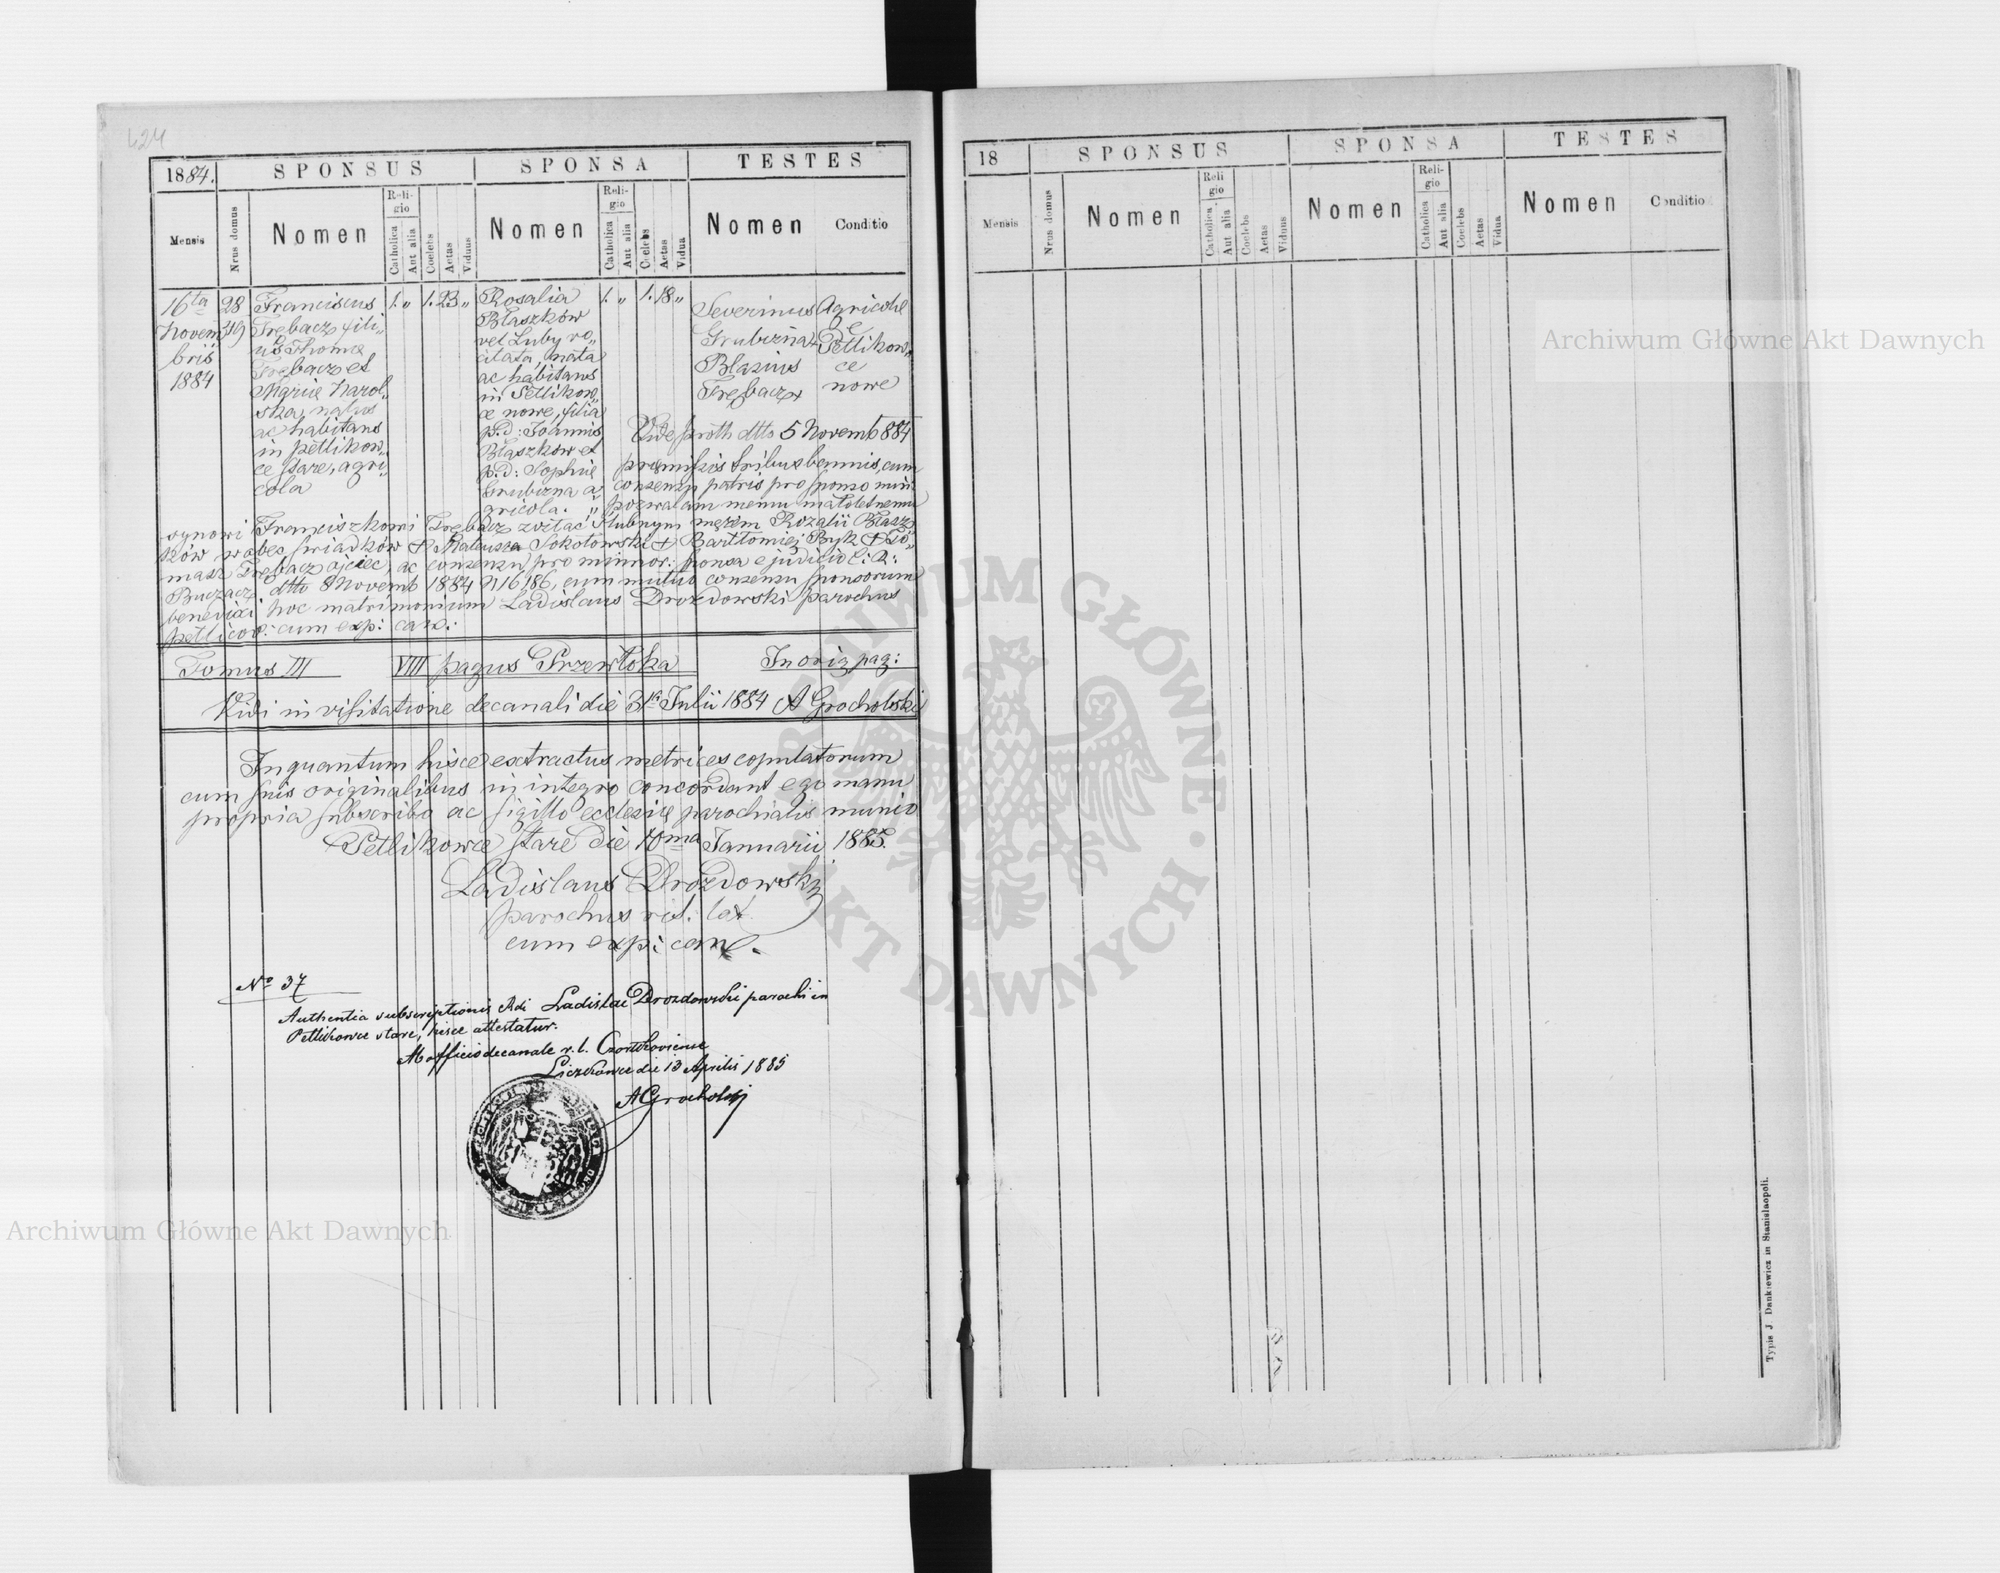 424
1884.
SPONSUS
SPONSA
TESTES
Mensis
Nrus domus
Nomen
Reli-
gio
Catholica
Aut alia
Coelebs
Aetas
Viduus
Nomen
Reli-
gio
Catholica
Aut alia
Coelebs
Aetas
Vidua
Nomen
Conditio
16ta
Novem
bris
1884
28
319
Franciscus
Trębacz fili„
us Thomæ
Trębacz et
Mariæ Karol„
ska, natus
ac habitans
in Petlikow„
ce stare, agri„
cola
1. „ 1. 23 „
Rosalia
Błaszków
vel Luby vo„
citata, nata
ac habitans
in Petlikow„
ce nowe, filia
p.d: Joannis
Błaszków et
p.d: Sophiæ
Grubizna a„
gricola. „
1. „ 1. 18 „
Severinus
Grubizna +
Blasius
Trębacz +
Agricolæ
de
Petlikow„
ce
nowe
Vide proth dtto 5 Novemb 884
præmissis tribus bannis, cum
consensu patris pro sponso min:
pozwalam memu małoletnemu
synowi Franciszkowi Trębacz zostać ślubnym mężem Rozalii Błasz„
ków wobec świadków + Mateusza Sokołowski + Bartłomiej Byk + To„
masz Trębacz ojciec, ac consensu pro minor: sponsa e judicio C: R:
Buczacz dtto 8 Novemb 1884 N 16186, cum mutuo consensu sponsorum
benedixi hoc matrimonium Ladislaus Drozdowski parochus
petlicov: cum exp: can:
Tomus III
VIII pagus Przewłoka
In orig pag:
Vidi in visitatione decanali die 31a Julii 1884 A Grocholski
Inquantum hisce extractus metrices copulatorum
cum suis originalibus in integro concordant ego manu
propria subscribo ac sigillo ecclesiæ parochialis munio
Petlikowce stare die 10ma Januarii 1885.
Ladislaus Drozdowski
parochus rit. lat
cum exp: can.
No 37
Authentia subscriptionis Adi Ladislai Drozdowski parochi in
Petlikowce stare, hisce attestatur.
Ab officio decanale r. l. Czortkoviense
Liczkowce die 13 Aprilis 1885
A Grocholski
18
SPONSUS
SPONSA
TESTES
Mensis
Nrus domus
Nomen
Reli
gio
Catholica
Aut alia
Coelebs
Aetas
Viduus
Nomen
Reli-
gio
Catholica
Aut alia
Coelebs
Aetas
Vidua
Nomen
Conditio
Typis J Dankiewicz in Stanislaopoli.
Archiwum Główne Akt Dawnych
Archiwum Główne Akt Dawnych
ARCHIWUM GŁÓWNE · AKT DAWNYCH ·